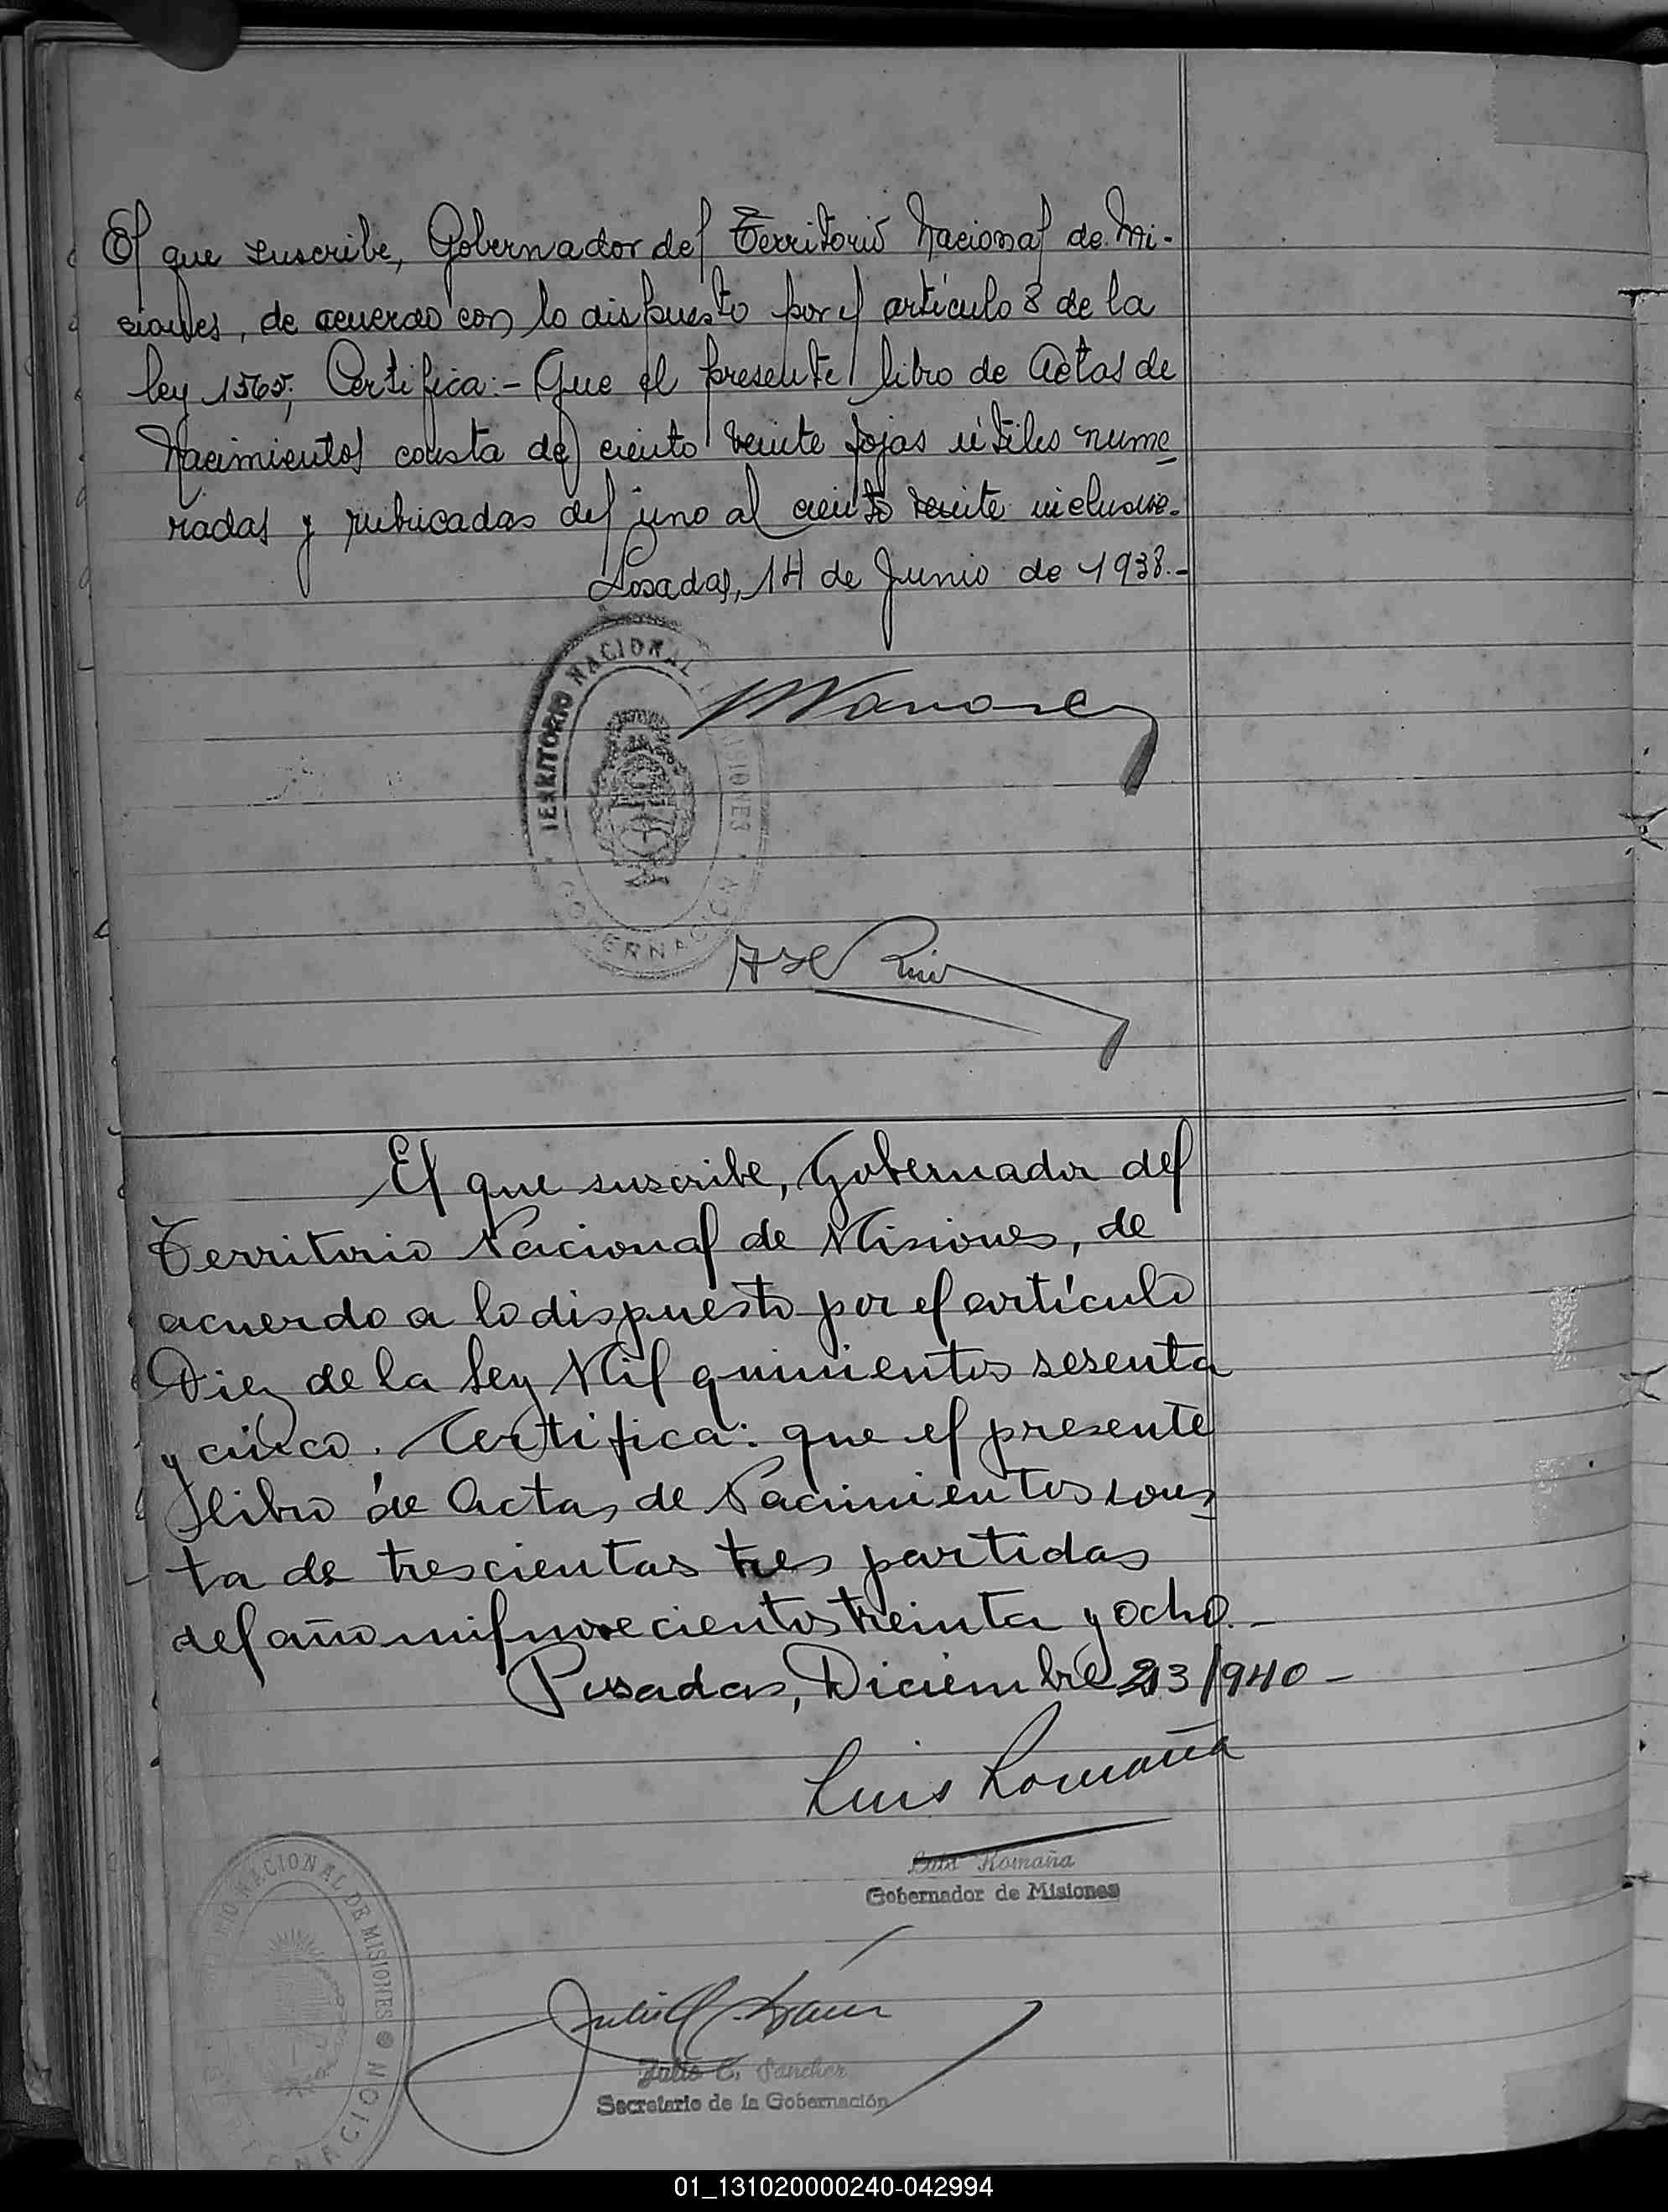 El que suscribe, Gobernador del Territorio Nacional de Mi-
siones, de acuerdo con lo dispuesto por el artículo 8 de la
ley 1565; Certifica:- Que el presente libro de Actas de
Nacimientos consta de ciento veinte fojas útiles nume
radas y rubricadas del uno al ciento veinte inclusive.
Posadas, 14 de Junio de 1938.-
TERRITORIO NACIONAL DE MISIONES · GOBERNACION
El que suscribe, Gobernador del
Territorio Nacional de Misiones, de
acuerdo a lo dispuesto por el artículo
Diez de la Ley Mil quinientos sesenta
y cinco. Certifica: que el presente
libro de Actas de Nacimientos cons
ta de trescientas tres partidas
del año mil novecientos treinta y ocho.-
Posadas, Diciembre 23/940-
Luis Romaña
Luis Romaña
Gobernador de Misiones
NACIONAL DE MISIONES
Julio C. Sanchez
Secretario de la Gobernación
01_131020000240-042994